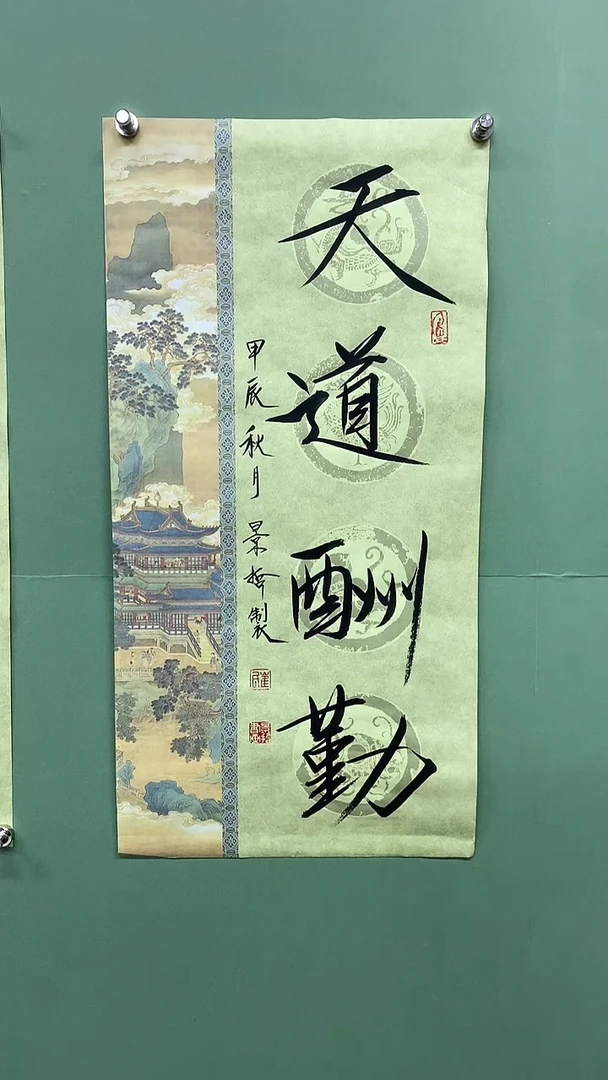 天道酬勤
甲辰秋月 景 製